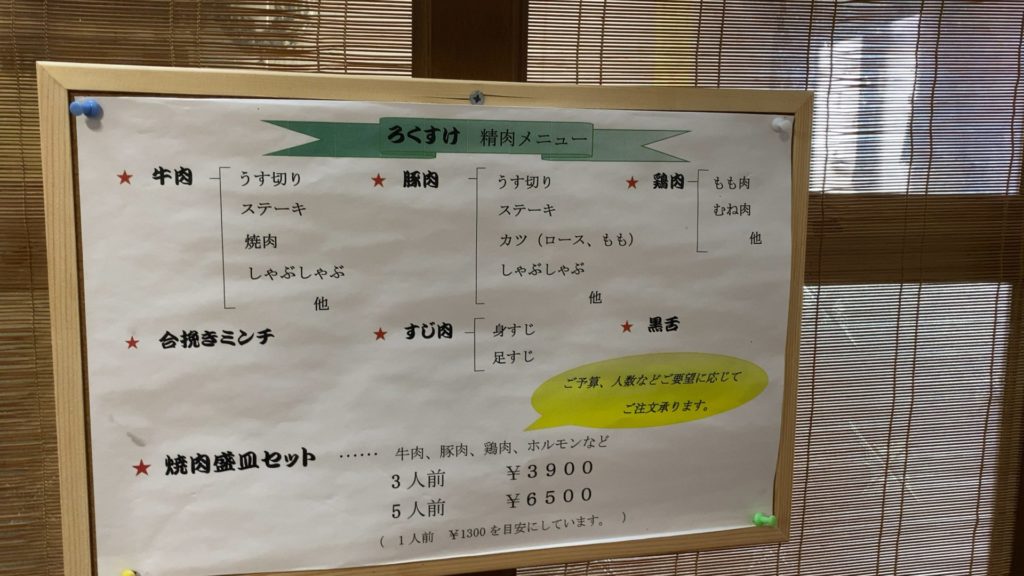 ろくすけ 精肉メニュー
★ 牛肉
うす切り
ステーキ
焼肉
しゃぶしゃぶ
他
★ 豚肉
うす切り
ステーキ
カツ（ロース、もも）
しゃぶしゃぶ
他
★ 鶏肉
もも肉
むね肉
他
★ 合挽きミンチ
★ すじ肉
身すじ
足すじ
★ 黒舌
ご予算、人数などご要望に応じて
ご注文承ります。
★ 焼肉盛皿セット …… 牛肉、豚肉、鶏肉、ホルモンなど
3人前 ￥3900
5人前 ￥6500
（ 1人前 ￥1300を目安にしています。 ）